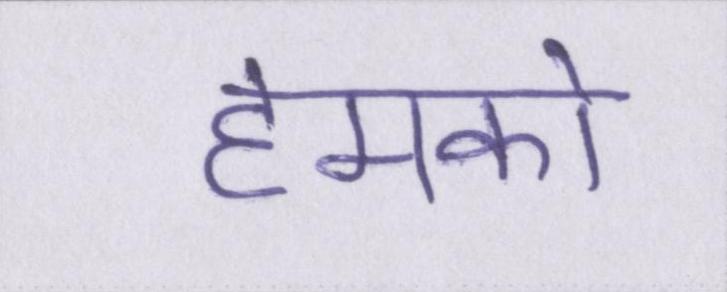 हमको